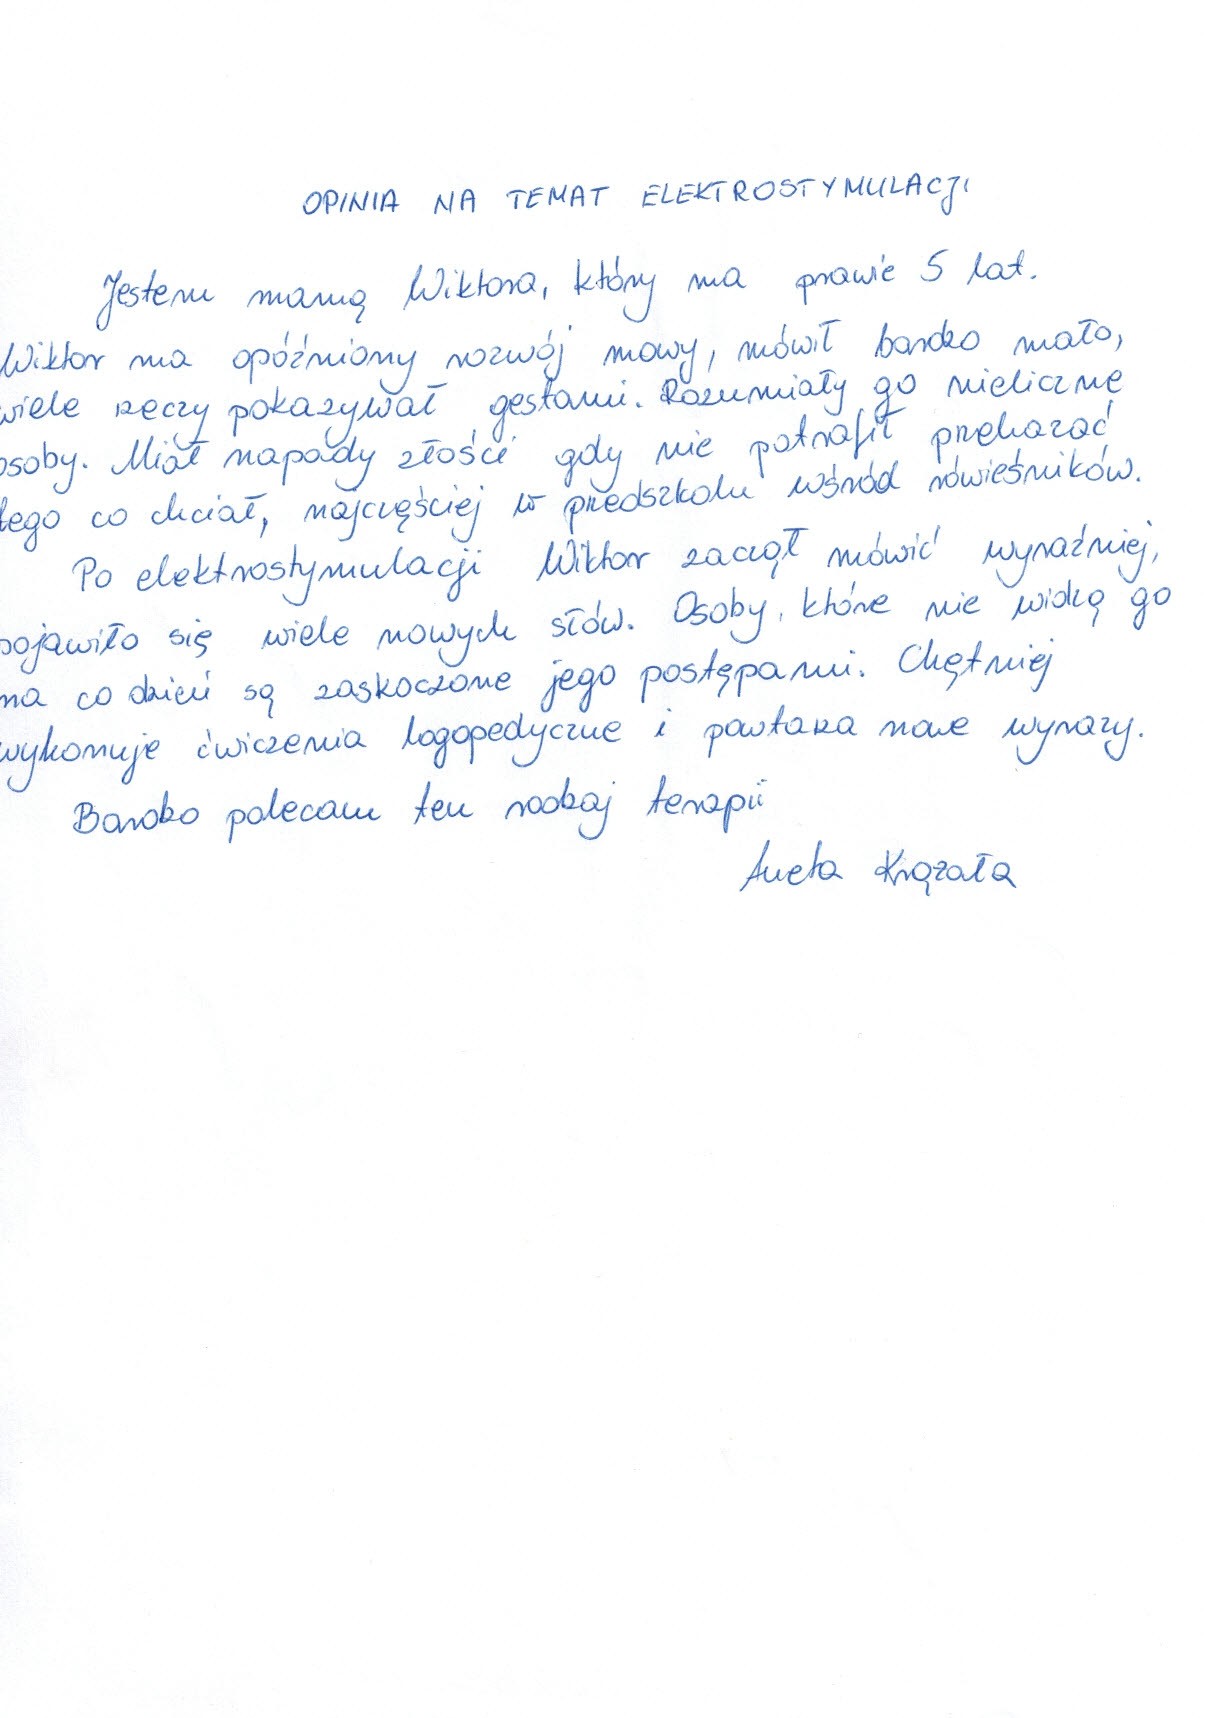 OPINIA NA TEMAT ELEKTROSTYMULACJI
Jestem mamą Wiktora, który ma prawie 5 lat.
Wiktor ma opóźniony rozwój mowy, mówił bardzo mało,
wiele rzeczy pokazywał gestami. Rozumiały go nieliczne
osoby. Miał napady złości gdy nie potrafił przekazać
tego co chciał, najczęściej w przedszkolu wśród rówieśników.
Po elektrostymulacji Wiktor zaczął mówić wyraźniej,
pojawiło się wiele nowych słów. Osoby, które nie widzą go
na co dzień są zaskoczone jego postępami. Chętniej
wykonuje ćwiczenia logopedyczne i powtarza nowe wyrazy.
Bardzo polecam ten rodzaj terapii
Aneta